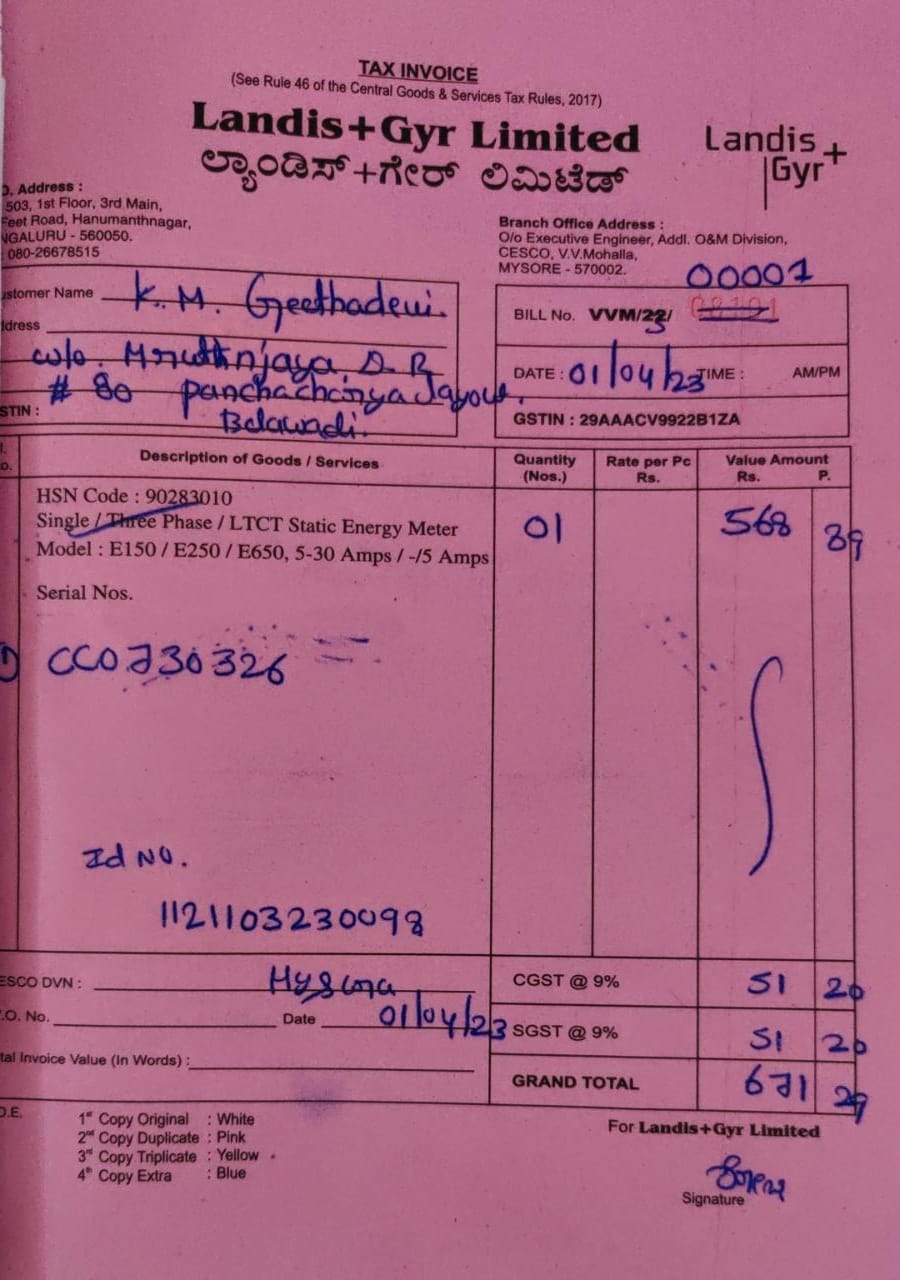 TAX INVOICE
(See Rule 46 of the Central Goods & Services Tax Rules, 2017)
Landis+Gyr Limited
ಲ್ಯಾಂಡಿಸ್+ಗೇರ್ ಲಿಮಿಟೆಡ್
Landis
Gyr+
. Address :
503, 1st Floor, 3rd Main,
Feet Road, Hanumanthnagar,
NGALURU - 560050.
080-26678515
Branch Office Address :
O/o Executive Engineer, Addl. O&M Division,
CESCO, V.V.Mohalla,
MYSORE - 570002.
00001
ustomer Name K. M. Geethadevi.
BILL No. VVM/23/
ddress
w/o. Mruthnjaya D. R
# 80 panchacharya layout.
STIN : Belawadi.
DATE : 01/04/23 TIME : AM/PM
GSTIN : 29AAACV9922B1ZA
Description of Goods / Services Quantity (Nos.) Rate per Pc Rs. Value Amount Rs. P.
HSN Code : 90283010
Single / Three Phase / LTCT Static Energy Meter 01 568 89
Model : E150 / E250 / E650, 5-30 Amps / -/5 Amps
Serial Nos.
1) CC0730326
Id NO.
1121103230098
ESCO DVN : Mysore
CGST @ 9% 51 20
.O. No. Date 01/04/23
SGST @ 9% 51 20
tal Invoice Value (In Words) :
GRAND TOTAL 671 29
O.E.
1st Copy Original : White
2nd Copy Duplicate : Pink
3rd Copy Triplicate : Yellow
4th Copy Extra : Blue
For Landis+Gyr Limited
Signature